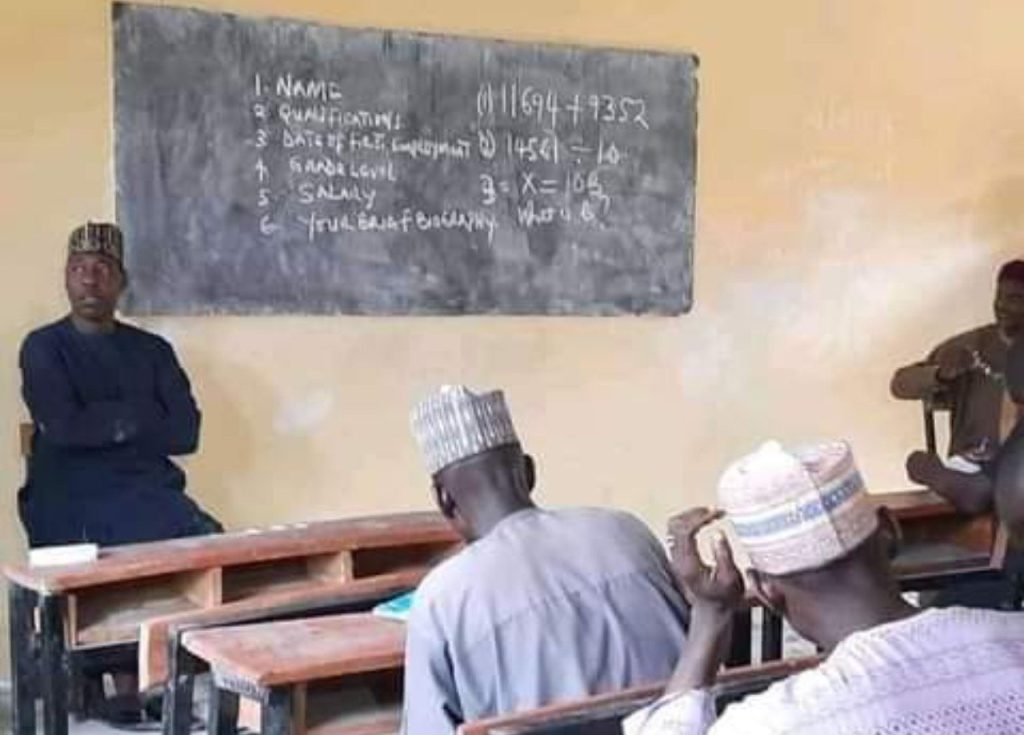 1. NAME
2 QUALIFICATIONS
3 DATE OF FIRST Employment
4 GRADE LEVEL
5 SALARY
6 YOUR BRIEF BIOGRAPHY
(1) 11694 + 9352
2) 14561 ÷ 10
3 = X =
What is